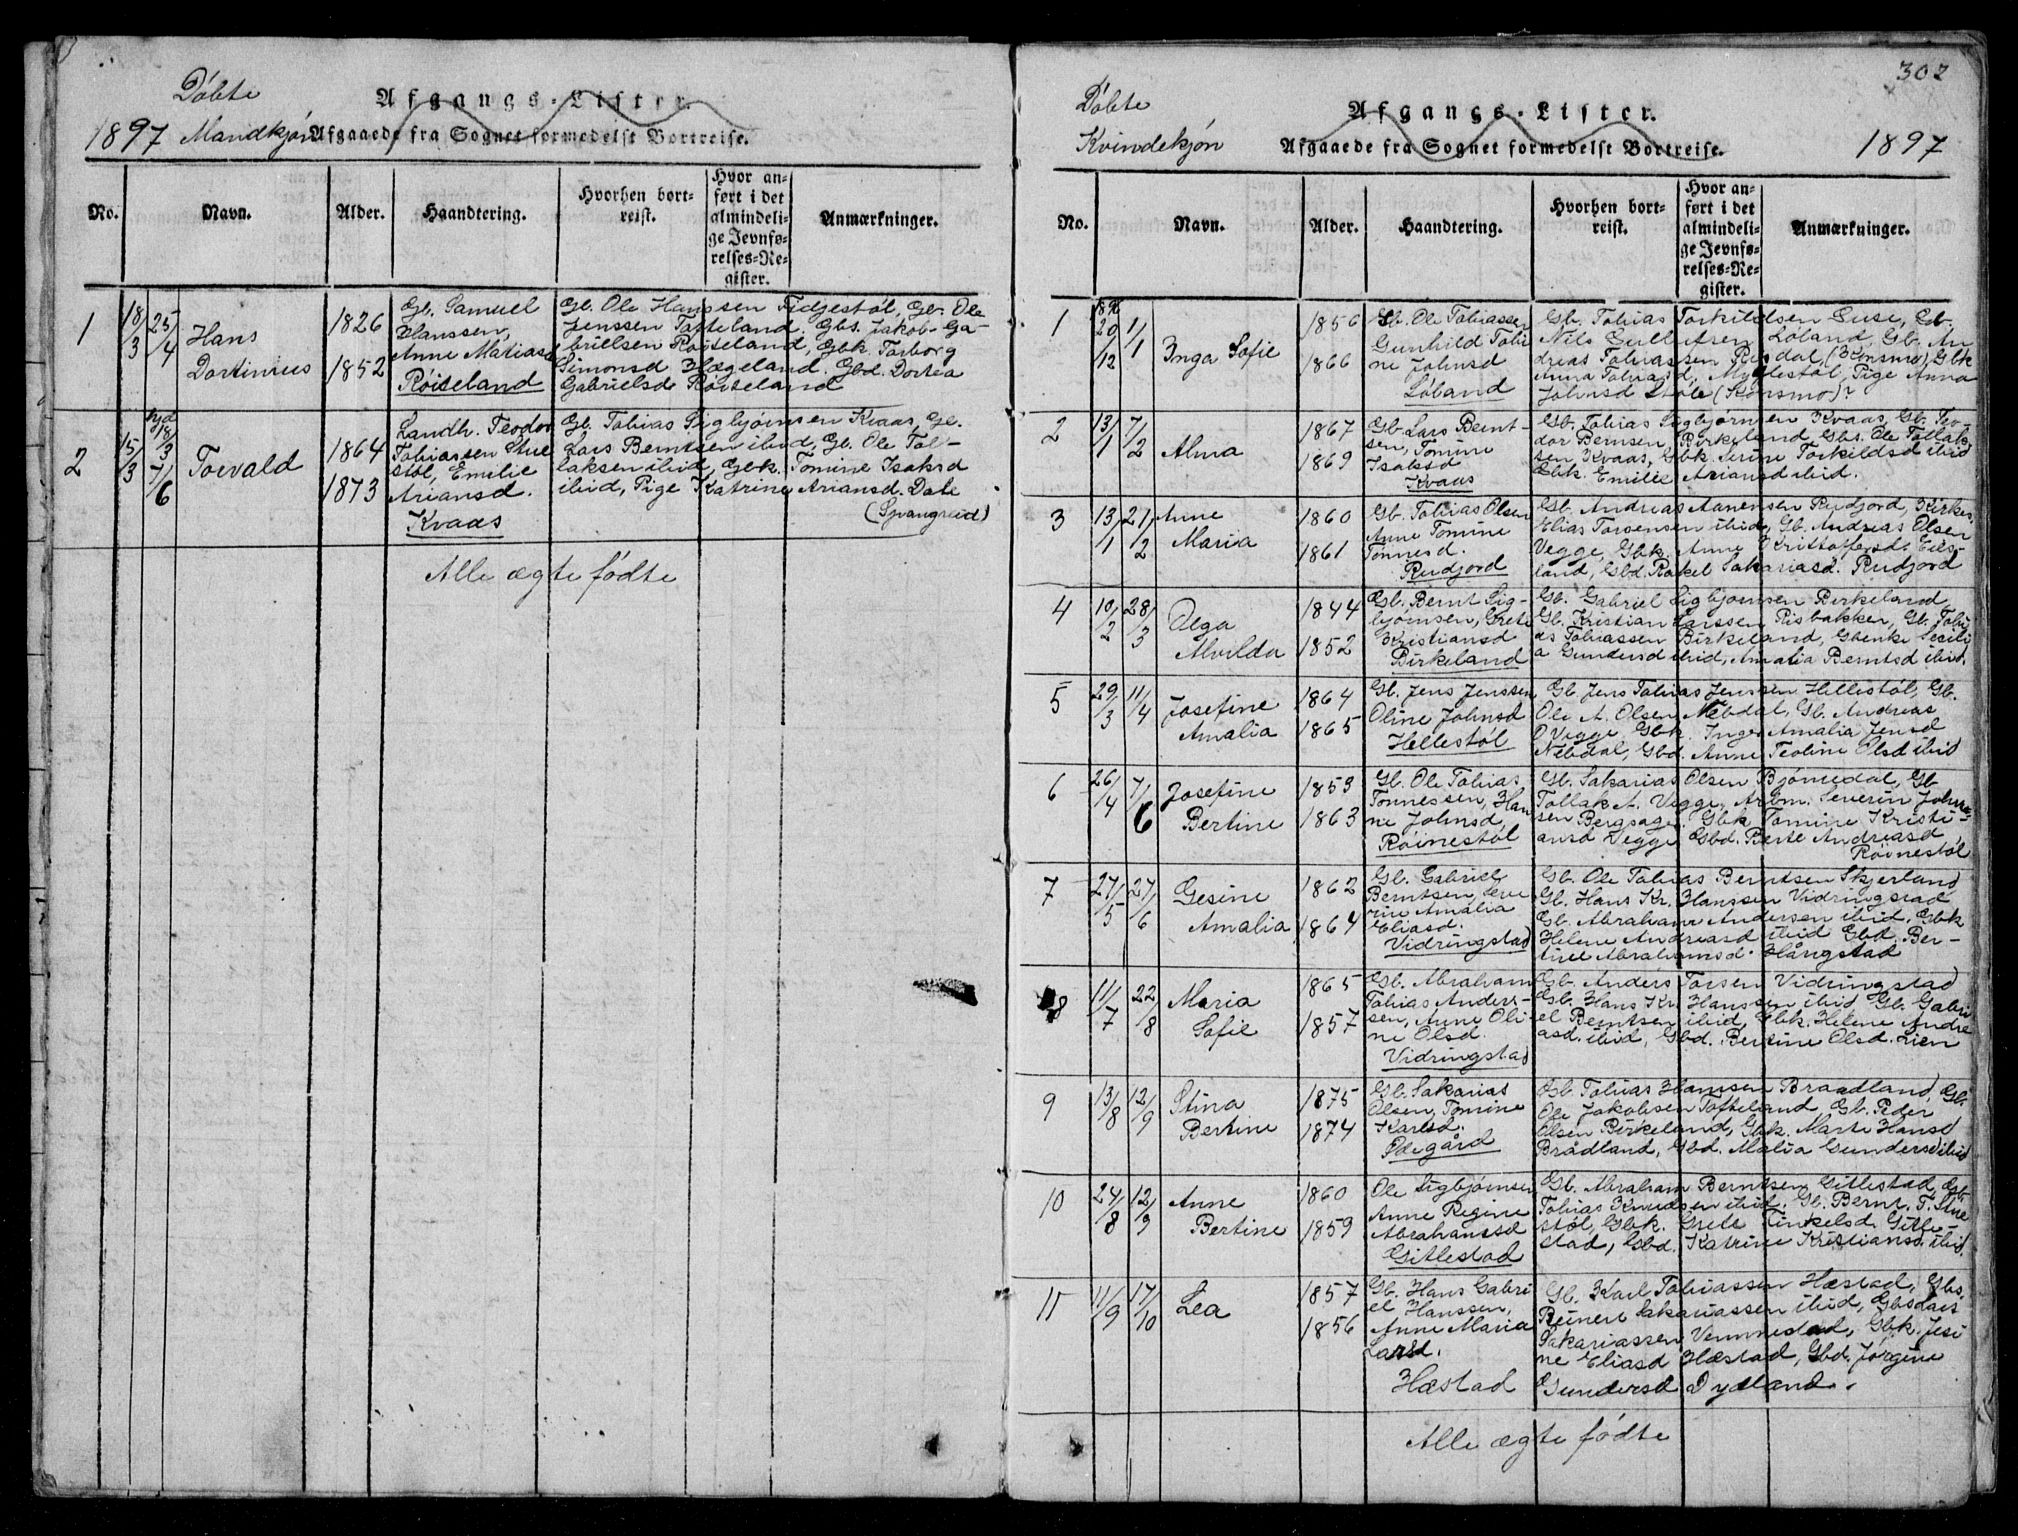 Döbte
Afgangs-Lister.
1897 Mandkjøn Afgaaede fra Sognet formedelst Bortreise.
No. Navn. Alder. Haandtering. Hvorhen bortreist. Hvor anført i det almindelige Jevnførelses-Register. Anmærkninger.
1 18/3 25/4 Hans Dortinius 1826 1852
Gb. Samuel
Hanssen,
Anne Matiasd
Røiseland
Gb. Ole Hanssen Fidgestøl, Gb. Ole
Jenssen Tofteland, Gbs. Jakob Ga-
brielsen Røiseland, Gbk. Torborg
Simonsd Hægeland, Gbd. Dortea
Gabrielsd Røiseland
2 15/3 hjd 18/3 7/6 Torvald 1864 1873
Landh. Teodor
Tobiassen Stue
støl, Emelie
Ariansd.
Kvaas
Gb. Tobias Sigbjørnsen Kvaas, Gb.
Lars Berntsen ibid, Gb. Ole Tol-
laksen ibid, Gbk. Tomine Isaksd
ibid, Pige Katrine Ariansd. Dale
(Spangreid)
Alle ægte fødte
302
Döbte
Afgangs-Lister.
Kvindekjøn Afgaaede fra Sognet formedelst Bortreise. 1897
No. Navn. Alder. Haandtering. Hvorhen bortreist. Hvor anført i det almindelige Jevnførelses-Register. Anmærkninger.
1 1896 20/12 1/1 Inga Sofie 1856 1866
Gb. Ole Tobiassen
Gunhild Tobi
ne Johnsd
Løland
Gb. Tobias Torkildsen Guse, Gb.
Nils Gullitsen Løland, Gb. An
dreas Tobiassen Risdal, (Konsmo), Gbk
Anna Tobiasd, Myglestøl, Pige Anna
Johnsd Støle (Konsmo)
2 13/1 7/2 Alma 1867 1869
Gb. Lars Bernt-
sen, Tomine
Isaksd
Kvaas
Gb. Tobias Sigbjørnsen Kvaas, Gb. Teo-
dor Bernsen, Birkeland, Gbs. Ole Tollak
sen Kvaas, Gbk. Serine Torkildsd ibid
Gbk. Emilie Ariansd ibid.
3 13/1 21/2 Anne Maria 1860 1861
Gb. Tobias Olsen
Anne Tomine
Tønnesd.
Rudjord
Gb. Andreas Aanensen Rudjord, Kirkes.
Elias Torsensen ibid, Gb. Andreas Olsen
Vegge, Gbk. Anne Kristoffersd Eids-
land, Gbd. Rakel Sakariasd. Rudjord
4 10/2 28/3 Olga Alvilda 1844 1852
Gb. Bernt Sig-
bjørnsen, Grete
Kristiansd
Birkeland
Gb. Gabriel Sigbjørnsen Birkeland,
Gb. Kristian Larssen Risbakken, Gb. Tobi
as Tobiassen Birkeland, Gbenke Secili
a Gundersd ibid, Amalia Berntsd ibid.
5 29/3 11/4 Josefine Amalia 1864 1865
Gb. Jens Jenssen
Oline Johnsd
Hellestøl
Gb. Jens Tobias Jenssen Hellestøl, Gb.
Ole A. Olsen Nebdal, Gb. Andreas
O Vegge, Gbk. Inger Amalia Jensd
Nebdal, Gbd. Anne Teoline Olsd ibid
6 26/4 7/6 Josefine Bertine 1853 1863
Gb. Ole Tobias
Tønnessen, Han
ne Johnsd,
Røinestøl
Gb. Sakarias Olsen Bjørnedal, Gb
Tollak A. Vegge, Arbm. Severin Johns-
sen Bergsager. Gbk Tomine Kristi-
ansd Vegge, Gbd. Berte Andreasd
Røinestøl
7 27/5 27/6 Gesine Amalia 1862 1864
Gb. Gabriel
Berntsen Seve
rine Amalia
Eliasd.
Vidringstad
Gb. Ole Tobias Berntsen Skjerland,
Gb. Hans Kr. Hanssen Vidringstad
Gb. Abraham Andersen ibid. Gbk
Helene Andreasd ibid Gbd. Ber-
tine Abrahamsd. Hångstad
8 11/7 22/8 Maria Sofie 1865 1857
Gb. Abraham
Tobias Anders-
sen, Anne Oli-
ne Olsd.
Vidringstad
Gb. Anders Torsen Vidringstad
Gb. Hans Kr. Hanssen ibid, Gb. Gabri
el Berntsen ibid, Gbk. Helene Andre
asd. ibid, Gbd. Bertine Olsd. Lien
9 13/8 12/9 Stina Bertine 1875 1874
Gb. Sakarias
Olsen, Tomine
Karlsd.
Ødegård
Gb. Tobias Hansen Braadland, Gb.
Ole Jakobsen Tofteland, Gb. Peder
Olsen Birkeland, Gbk. Marte Hansd
Brådland, Gbd. Malia Gundersd ibid
10 24/8 12/9 Anne Bertine 1860 1859
Ole Sigbjørnsen
Anne Regine
Abrahamsd
Gitlestad
Gb. Abraham Berntsen Gitlestad, Gb.
Tobias Knudsen ibid. Gb. Bernt T. Stue
støl, Gbk. Grete Tinkelsd. Gitle-
stad, Gbd. Katrine Kristiansd. ibid.
11 11/9 17/10 Lea 1857 1856
Gb. Hans Gabri
el Hanssen,
Anne Maria
Larsd.
Hæstad
Gb. Karl Tobiassen Hæstad, Gbs.
Reinert Sakariassen ibid, Gbs Lars
Sakariassen Vemmestad, Gbk. Jesi
ne Eliasd Hæstad, Gbd. Jørgine
Gundersd Dydland.
Alle ægte fødte